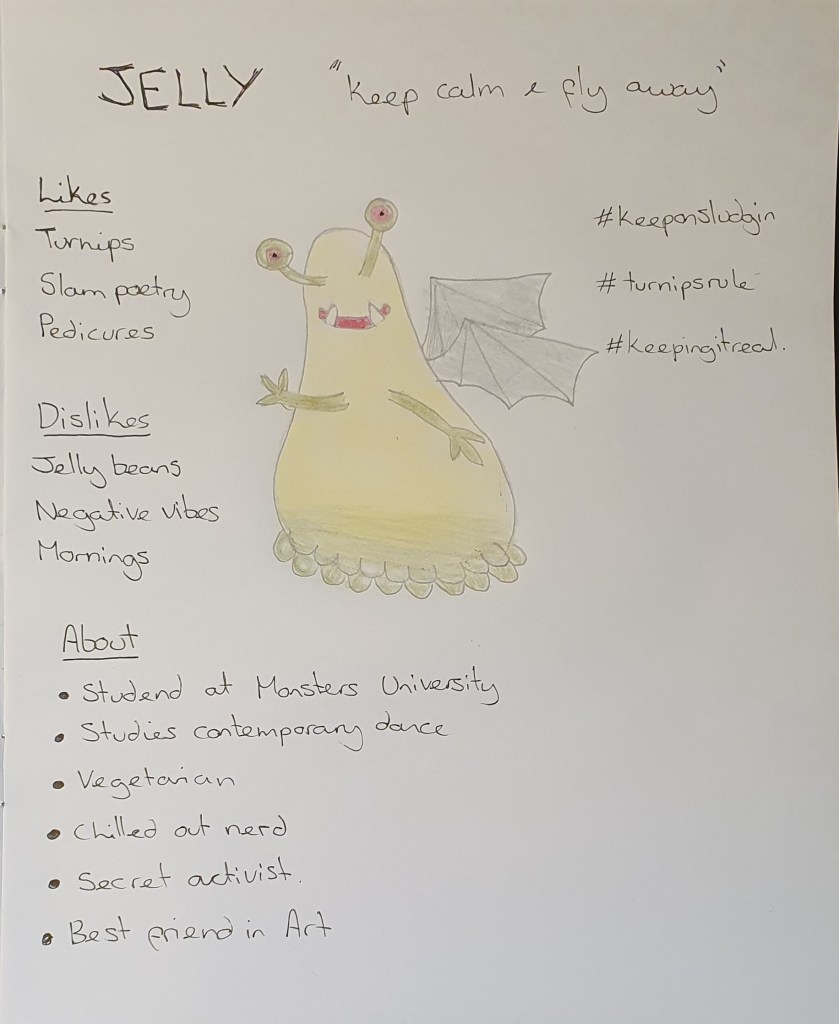 JELLY "Keep calm & fly away"
Likes
Turnips
Slam poetry
Pedicures
#keeponsludgin
#turnipsrule
#keepingitreal.
Dislikes
Jelly beans
Negative vibes
Mornings
About
• Studend at Monsters University
• Studies contemporary dance
• Vegetarian
• Chilled out nerd
• Secret activist.
• Best friend in Art